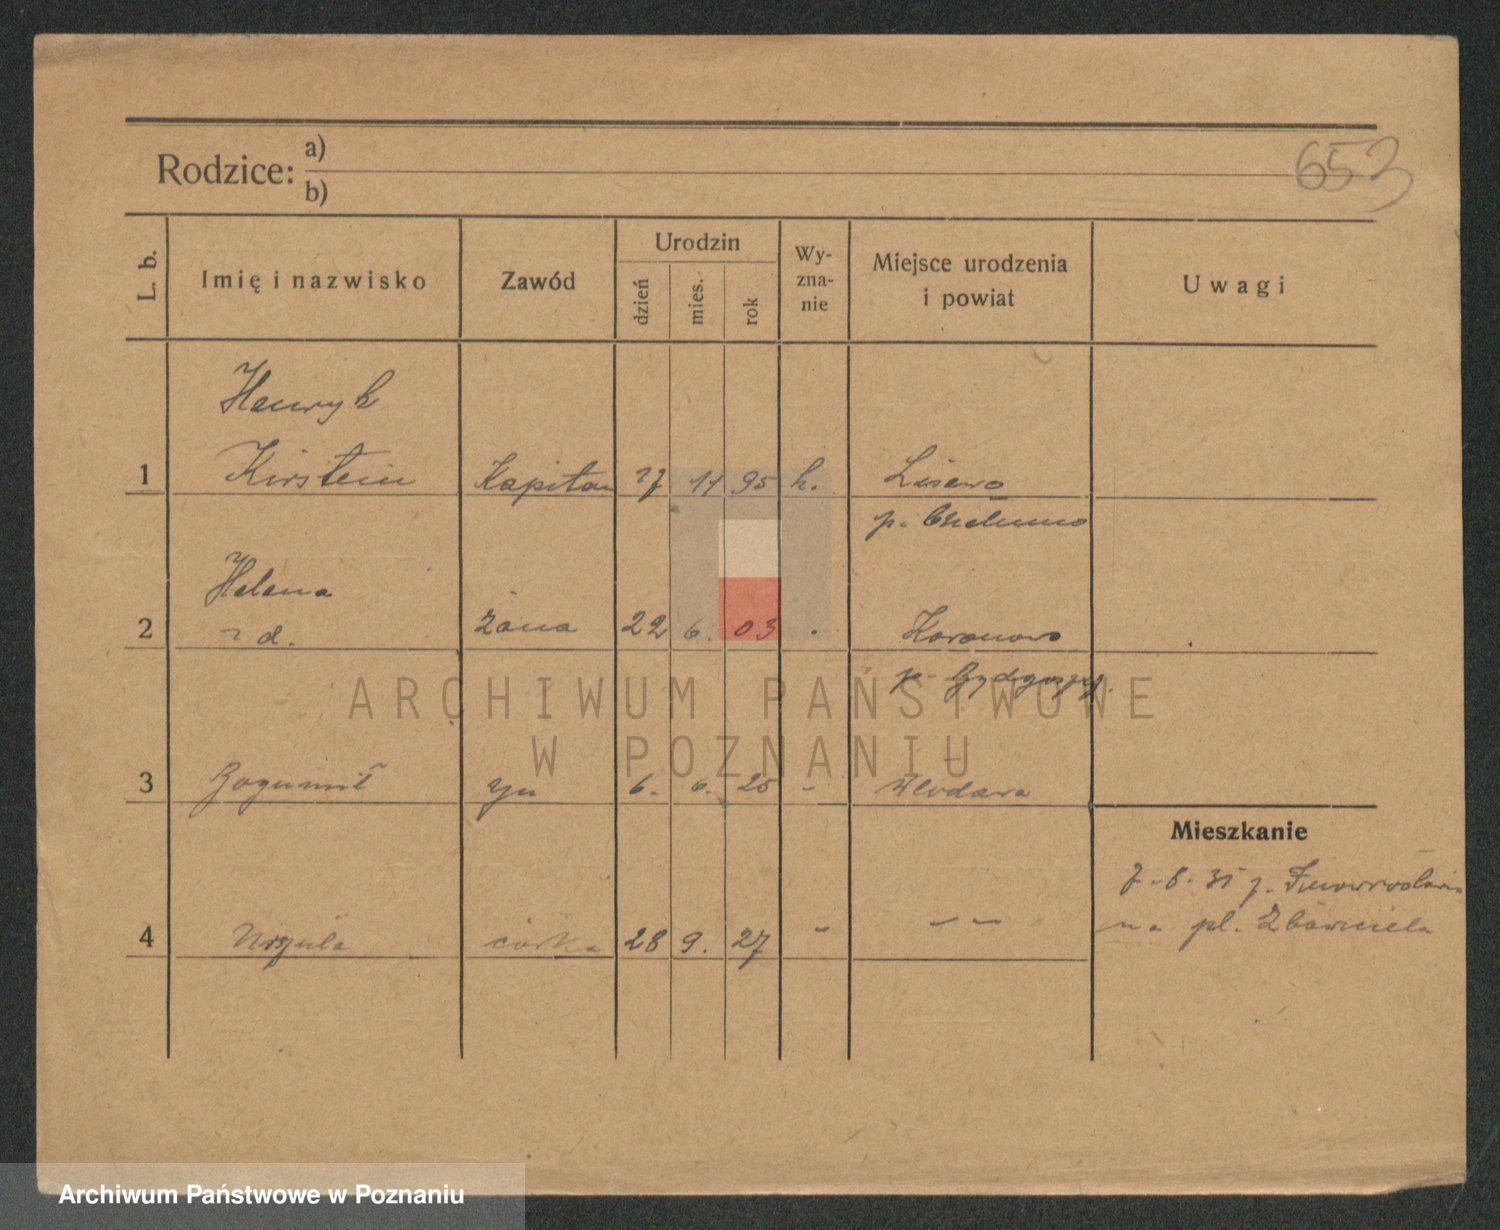 653
Rodzice: a)
b)
L. b.
Imię i nazwisko
Zawód
Urodzin
dzień
mies.
rok
Wy-
zna-
nie
Miejsce urodzenia
i powiat
Uwagi
Henryk
1 Kirstein Kapitan 27 11 95 k. Lisewo
p. Chełmno
Helena
2 z d. żona 22 6. 03 Koronowo
p. Bydgoszcz.
3 Bogumił syn 6. 6. 25 - Włodawa
Mieszkanie
7.8.31 z. Inowrocławia
4 Urszula córka 28 9. 27 - — —
na pl.
ARCHIWUM PAŃSTWOWE
W POZNANIU
Archiwum Państwowe w Poznaniu